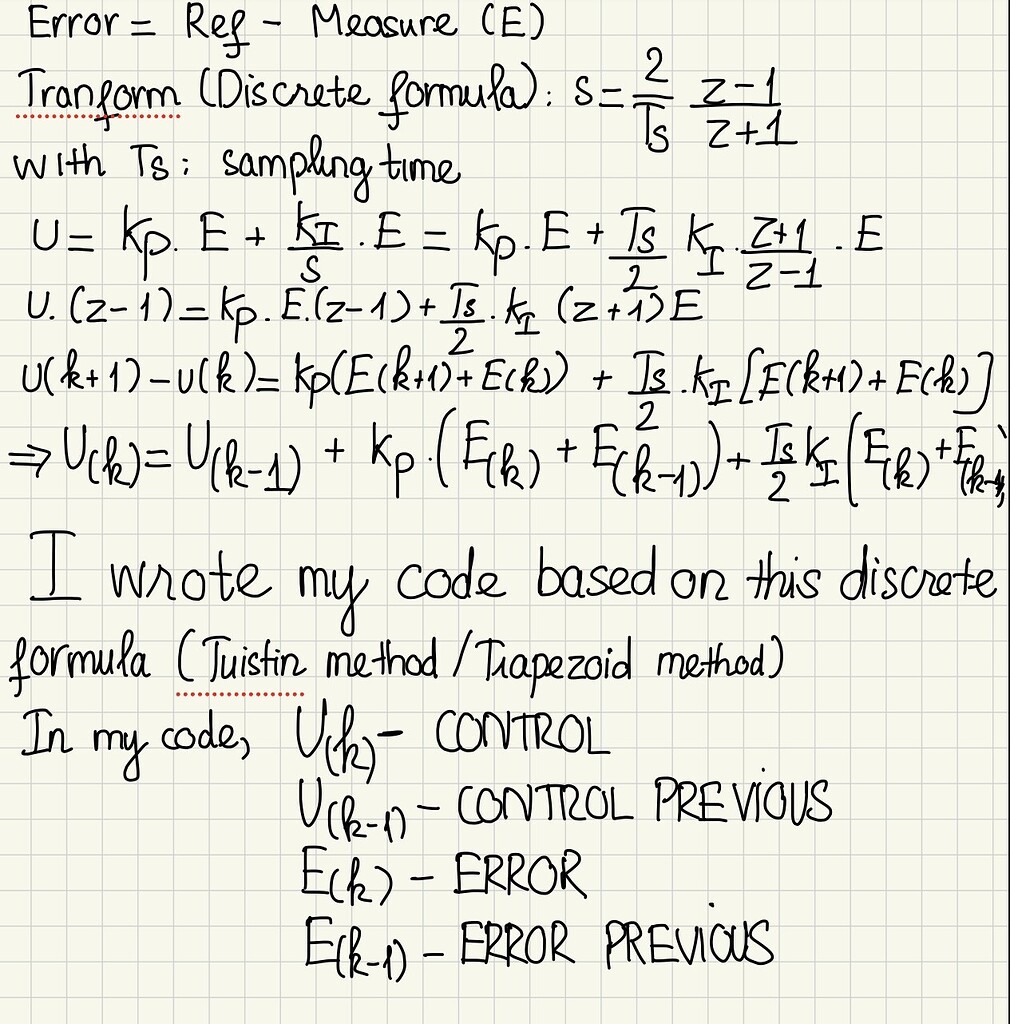 Error = Ref - Measure (E)
Tranform (Discrete formula): s = 2/Ts z-1/z+1
with Ts: sampling time
U = Kp. E + KI/s . E = Kp. E + Ts/2 KI . z+1/z-1 . E
U. (z-1) = Kp. E.(z-1) + Ts/2 . KI (z+1) E
U(k+1) - U(k) = Kp(E(k+1) + E(k)) + Ts/2 . KI [E(k+1) + E(k)]
⇒ U(k) = U(k-1) + Kp . (E(k) + E(k-1)) + Ts/2 KI (E(k) + E(k-1)
I wrote my code based on this discrete
formula (Tuistin method / Trapezoid method)
In my code, U(k) - CONTROL
U(k-1) - CONTROL PREVIOUS
E(k) - ERROR
E(k-1) - ERROR PREVIOUS